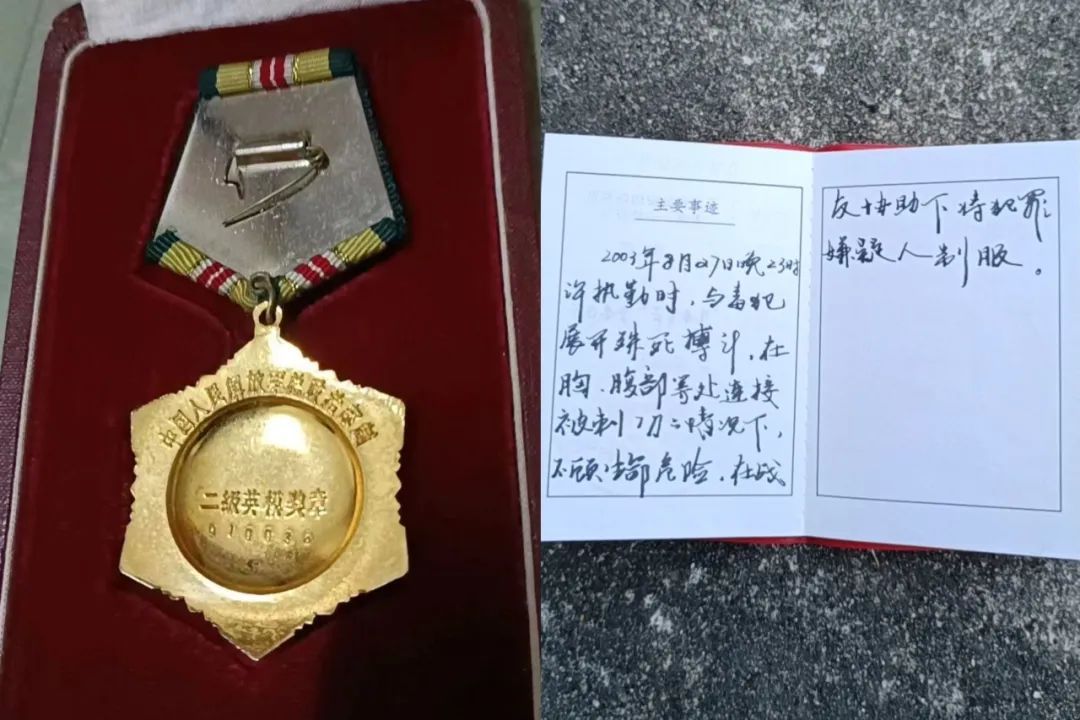 中国人民解放军总政治部制
二级英模奖章
主要事迹
2003年8月27日晚23时
许执勤时，与毒犯
展开殊死搏斗，在
胸、腹部等处连接
被刺 刀 情况下，
不顾 危险，在战
友协助下将犯罪
嫌疑人制服。